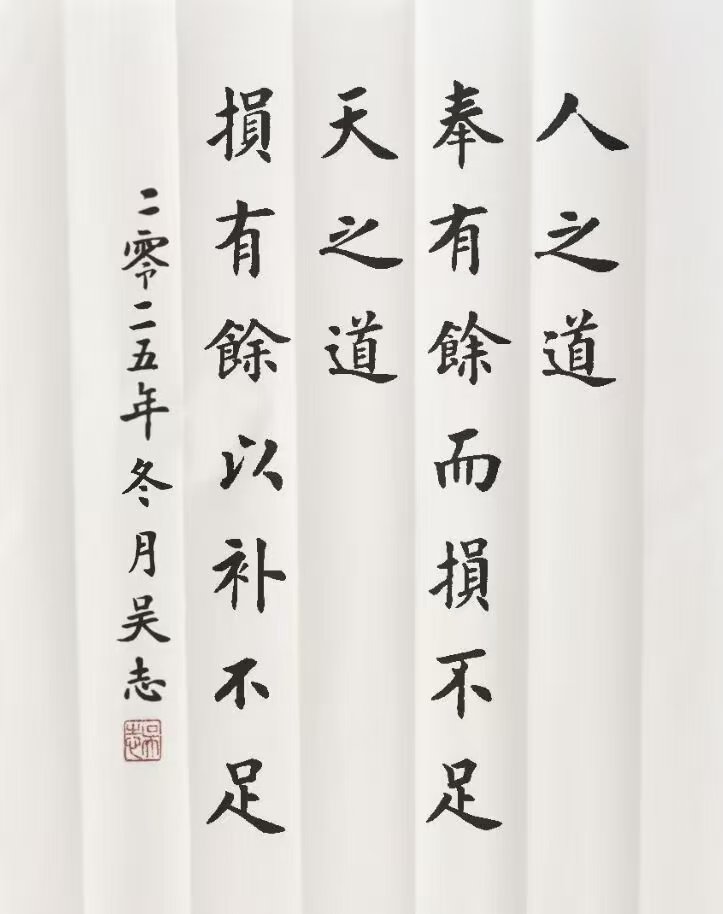 人之道
奉有餘而損不足
天之道
損有餘以补不足
二零二五年冬月吴志
吴志